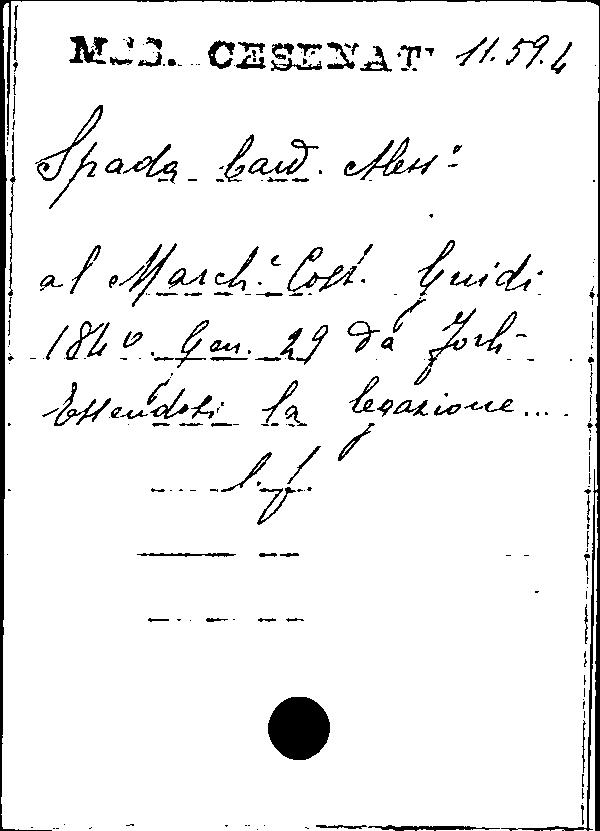 MSS. CESENATI 11.59.4
Spada Card. Aless.º
al March.e Cost. Guidi
1840. Gen. 29 da Forlì
Essendosi la legazione....
l. f.